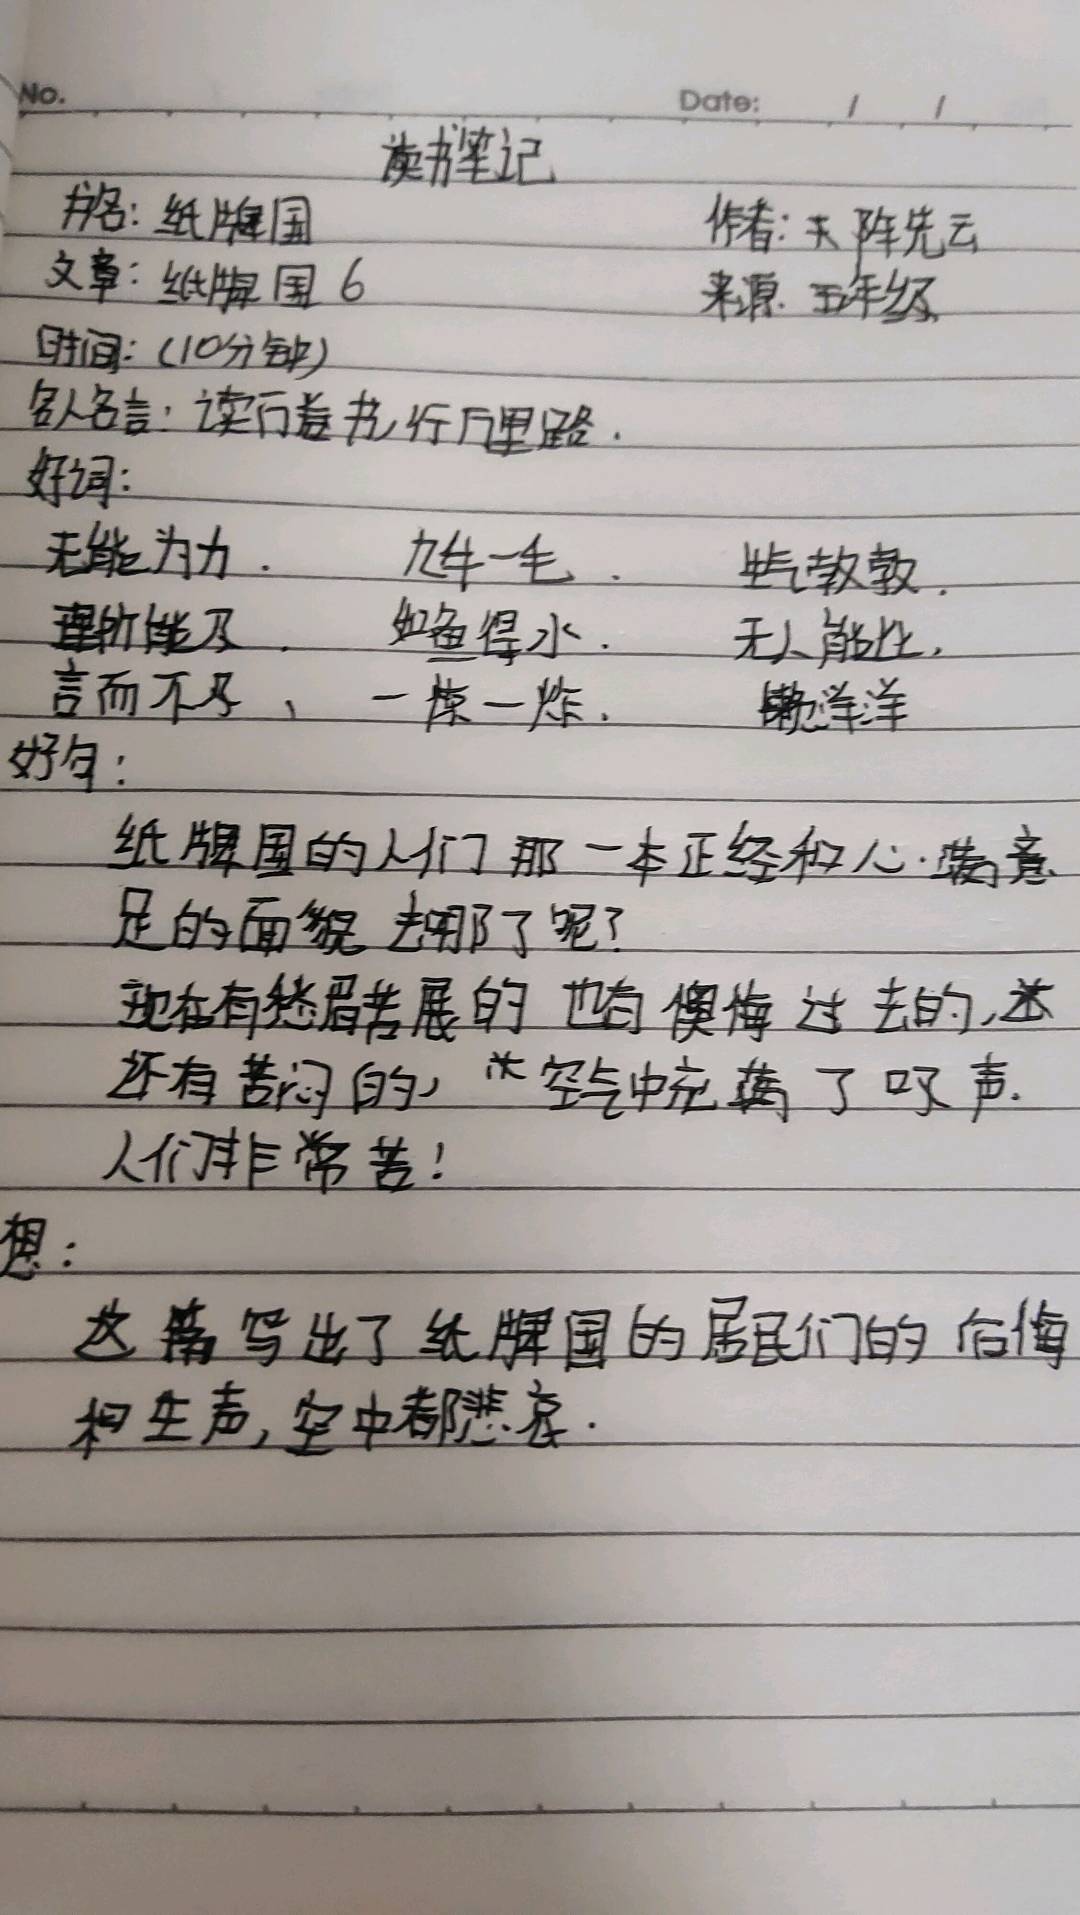 No. Date: / /
读书笔记
书名：纸牌国 作者：天阵先云
文章：纸牌国6 来源：五年级
时间：(10分钟)
名人名言：读万卷书，行万里路.
好词：
无能为力. 九牛一毛. 生气勃勃.
理所能及. 如鱼得水. 无人能比.
言而不及、 一惊一炸. 懒洋洋
好句：
纸牌国的人们那一本正经和心满意
足的面貌去哪了呢？
现在有愁眉苦展的 也有懊悔过去的,还
还有苦闷的，空气中充满了叹声.
人们非常苦！
想：
这篇写出了纸牌国的居民们的后悔
和生声,空中都悲哀.